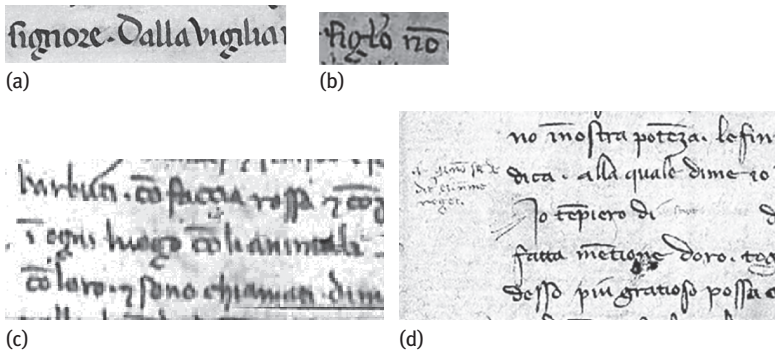 signore. Dalla vigilia
(a)
figło nō
(b)
barbuti. cō faccia rossa ⁊ cō
ī ogni luogo cō li animali
cō loro. ⁊ sono chiamati. dim
(c)
no īnostra potēza. le fin
dica. alla quale dime io
Io tēpiero di
fatta mētione doro. tog
desso piu gratioso possa
(d)